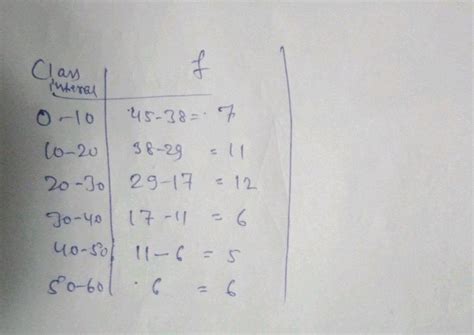 Class interval f
0-10 45-38= 7
10-20 38-29 = 11
20-30 29-17 = 12
30-40 17-11 = 6
40-50 11-6 = 5
50-60 6 = 6